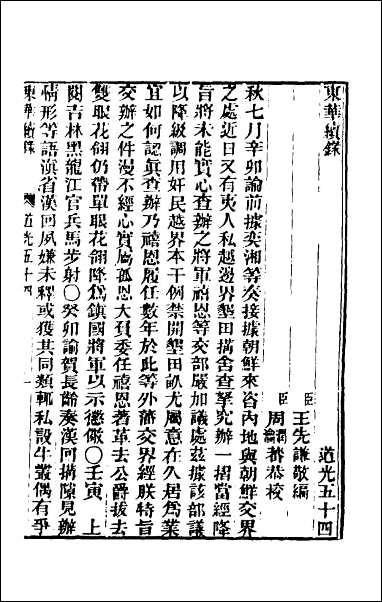 東華續錄
道光五十四
臣王先謙敬編
臣周潤蕃周瀹蕃恭校
秋七月辛卯諭前據奕湘等奏接據朝鮮來咨內地與朝鮮交界
之處近日又有夷人私越邊界墾田搆舍查拏究辦一摺當經降
旨將未能實心查辦之將軍禧恩等交部嚴加議處茲據該部議
以降級調用奸民越界本干例禁開墾田畝尤屬意在久居為業
宜如何認眞查辦乃禧恩履任數年於此等外藩交界經朕特旨
交辦之件漫不經心實屬孤恩大負委任禧恩著革去公爵拔去
雙眼花翎仍帶單眼花翎降為鎮國將軍以示懲儆〇壬寅　上
閱吉林黑龍江官兵馬步射〇癸卯諭賀長齡奏漢回搆隙見辦
情形等語滇省漢回夙嫌未釋或獲其同類輒私設牛叢偶有爭
東華續錄　道光五十四　一